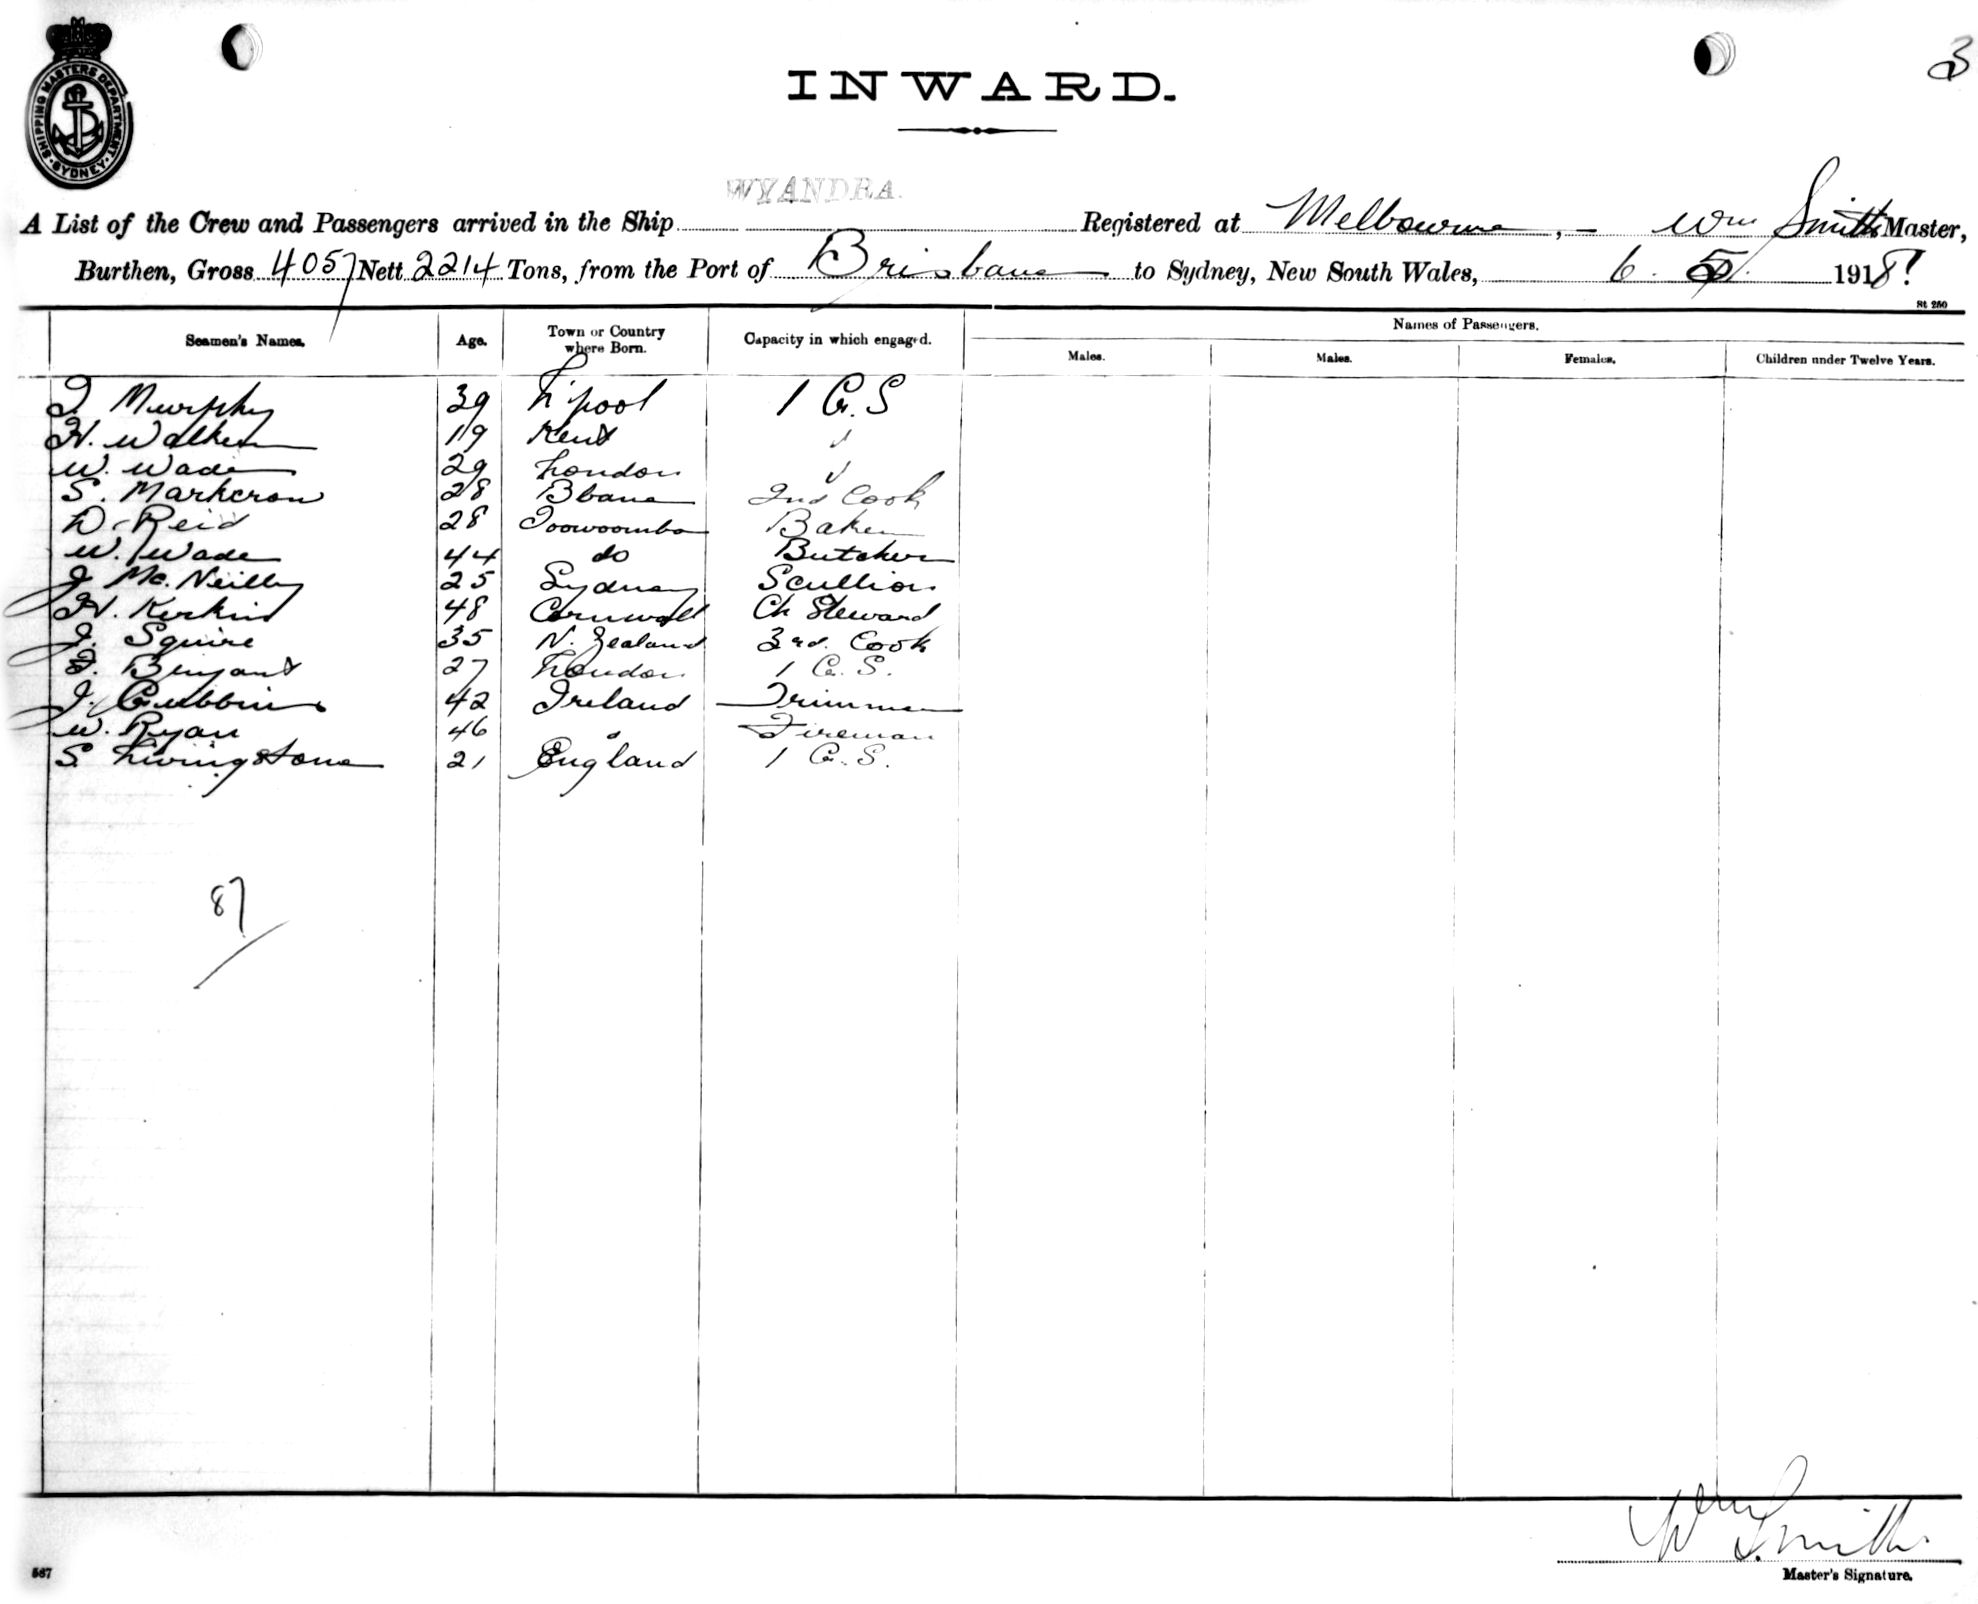 3
SHIPPING MASTERS DEPARTMENT
SYDNEY
INWARD.
WYANDRA.
A List of the Crew and Passengers arrived in the Ship Registered at Melbourne, - Wm Smith Master,
Burthen, Gross 4057 Nett 2214 Tons, from the Port of Brisbane to Sydney, New South Wales, 6. 5. 1918
St 250
Seamen's Names. Age. Town or Country where Born. Capacity in which engaged. Names of Passengers.
Males. Males. Females. Children under Twelve Years.
J. Murphy 39 L'pool 1 G.S
H. Walker 19 Kent "
W. Wade 29 London "
S. Markcrow 28 Bbane 2nd Cook
D. Reid 28 Toowoomba Baker
W. Wade 44 do Butcher
J Mc.Neilly 25 Sydney Scullion
H. Kirkin 48 Cornwall Ch Steward
J. Squire 35 N. Zealand 3rd. Cook
27 London 1 G.S.
J. Gubbins 42 Ireland Trimmer
W. Ryan 46 " Fireman
S. Livingstone 21 England 1 G.S.
87
Wm Smith
Master's Signature.
587